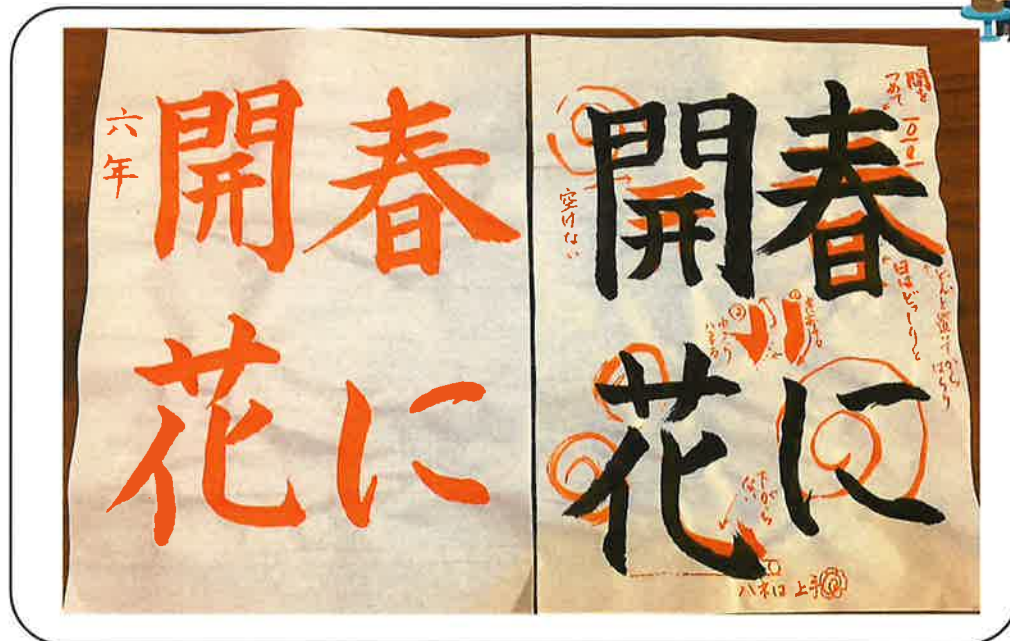 春に
開花
六年
春に
開花
間を
つめて
空けない
日はどっしりと
下がら
ない
ハネは上手